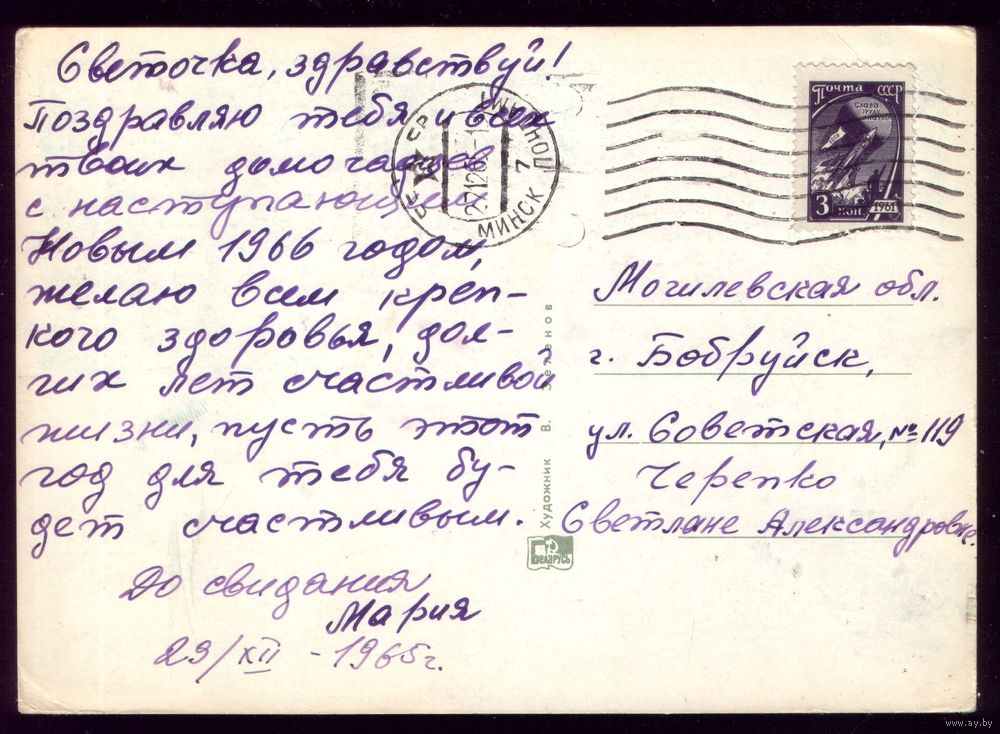 Светочка, здравствуй!
Поздравляю тебя и всех
твоих домочадцев
с наступающим
Новым 1966 годом,
желаю всем креп-
кого здоровья, дол-
гих лет счастливой
жизни, пусть этот
год для тебя бу-
дет счастливым.
До свидания
Мария
29/XII - 1965г.
МИНСК 7
Почта СССР
СЛАВА
3 коп. 1961
Могилевская обл.
г. Бобруйск,
ул. Советская, № 119
Черепко
Светлане Александровне
Художник В. Зеленов
БЕЛАРУСЬ
www.ay.by